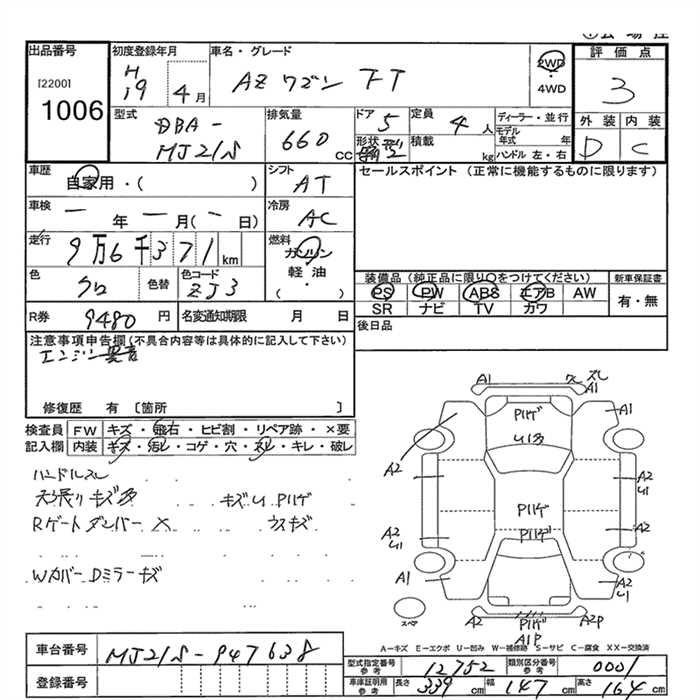 出品番号
[2200]
1006
初度登録年月
H19 4月
車名・グレード
AZワゴン FT
2WD
4WD
評価点
3
外装 内装
D C
型式
DBA-
MJ21S
排気量
660 cc
ドア 5
形状
定員 4人
積載 kg
ディーラー・並行
モデル年式 年
ハンドル 左・右
車歴
自家用・( )
シフト
AT
セールスポイント (正常に機能するものに限ります)
車検
ー 年 ー 月(ー 日)
冷房
AC
走行
9万6千371km
燃料
ガソリン
軽油・
( )
色
クロ
色替
色コード
ZJ3
装備品(純正品に限り○をつけてください)
新車保証書
PS PW ABS エアB AW
SR ナビ TV カワ
有・無
R券
9480円
名変通知期限 月 日
後日品
注意事項申告欄(不具合内容等は具体的に記入して下さい)
エンジン異音
修復歴 有 〔箇所 〕
検査員
記入欄
FW キズ・飛石・ヒビ割・リペア跡・×要
内装 キズ・汚レ・コゲ・穴・スレ・キレ・破レ
ハンドルスレ
天張りキズ多 キズU P11ゲ
Rゲートダンパー× ウスキズ
Wカバー Dミラーキズ
A1 ズレ
A1
P11ゲ
A1
U13
A2
A2
U1
P11ゲ
A2
U1
P11ゲ
A2
A1
A2
U1
スペア
A2
P11ゲ
A2P
A1P
A-キズ E-エクボ U-凹み W-補修跡 S-サビ C-腐食 XX-交換済
車台番号
MJ21S-947638
登録番号
型式指定番号
参考
12752
類別区分番号
参考
0001
車庫証明用
参考
長さ 339 cm 幅 147 cm 高さ 164 cm